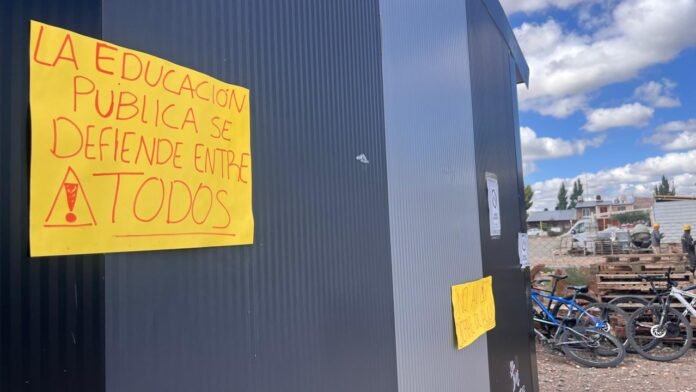 LA EDUCACIÓN
PÚBLICA SE
DEFIENDE ENTRE
TODOS